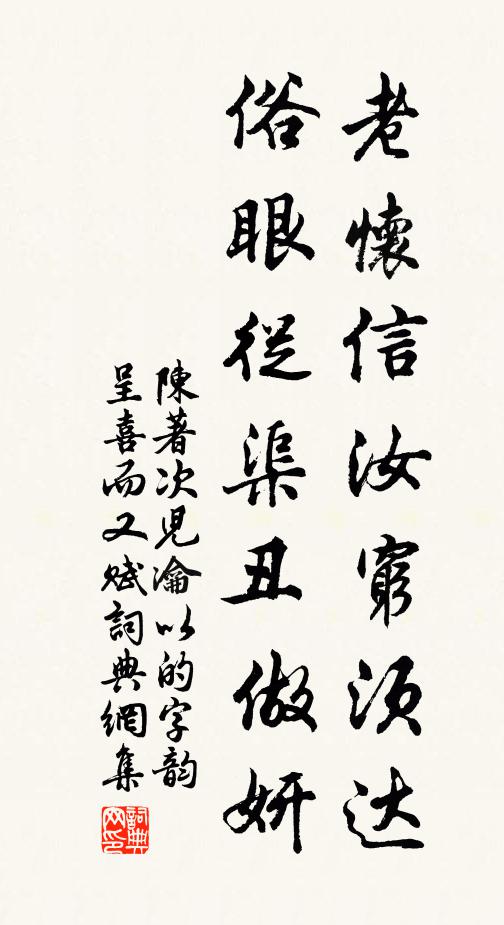 老懷信汝窮须达
俗眼從渠丑做妍
陳著次児瀹以的字韵
呈喜而又赋詞典網集
詞典网印